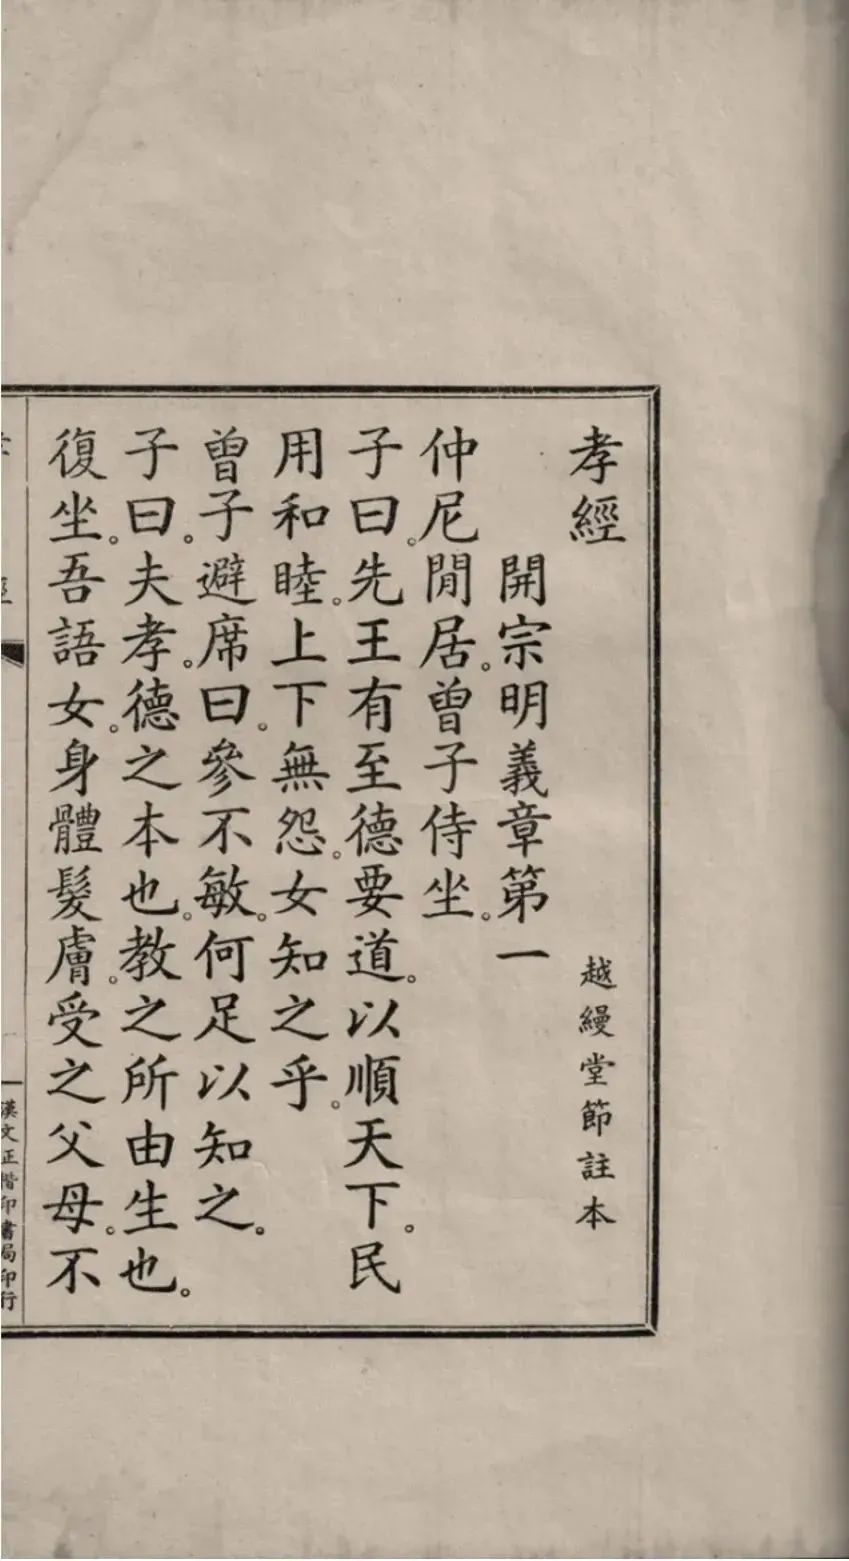 孝經
越縵堂節註本
開宗明義章第一
仲尼閒居。曾子侍坐。
子曰。先王有至德要道。以順天下。民
用和睦。上下無怨。女知之乎。
曾子避席曰。參不敏。何足以知之。
子曰。夫孝。德之本也。教之所由生也。
復坐。吾語女。身體髮膚。受之父母。不
一
漢文正楷印書局印行